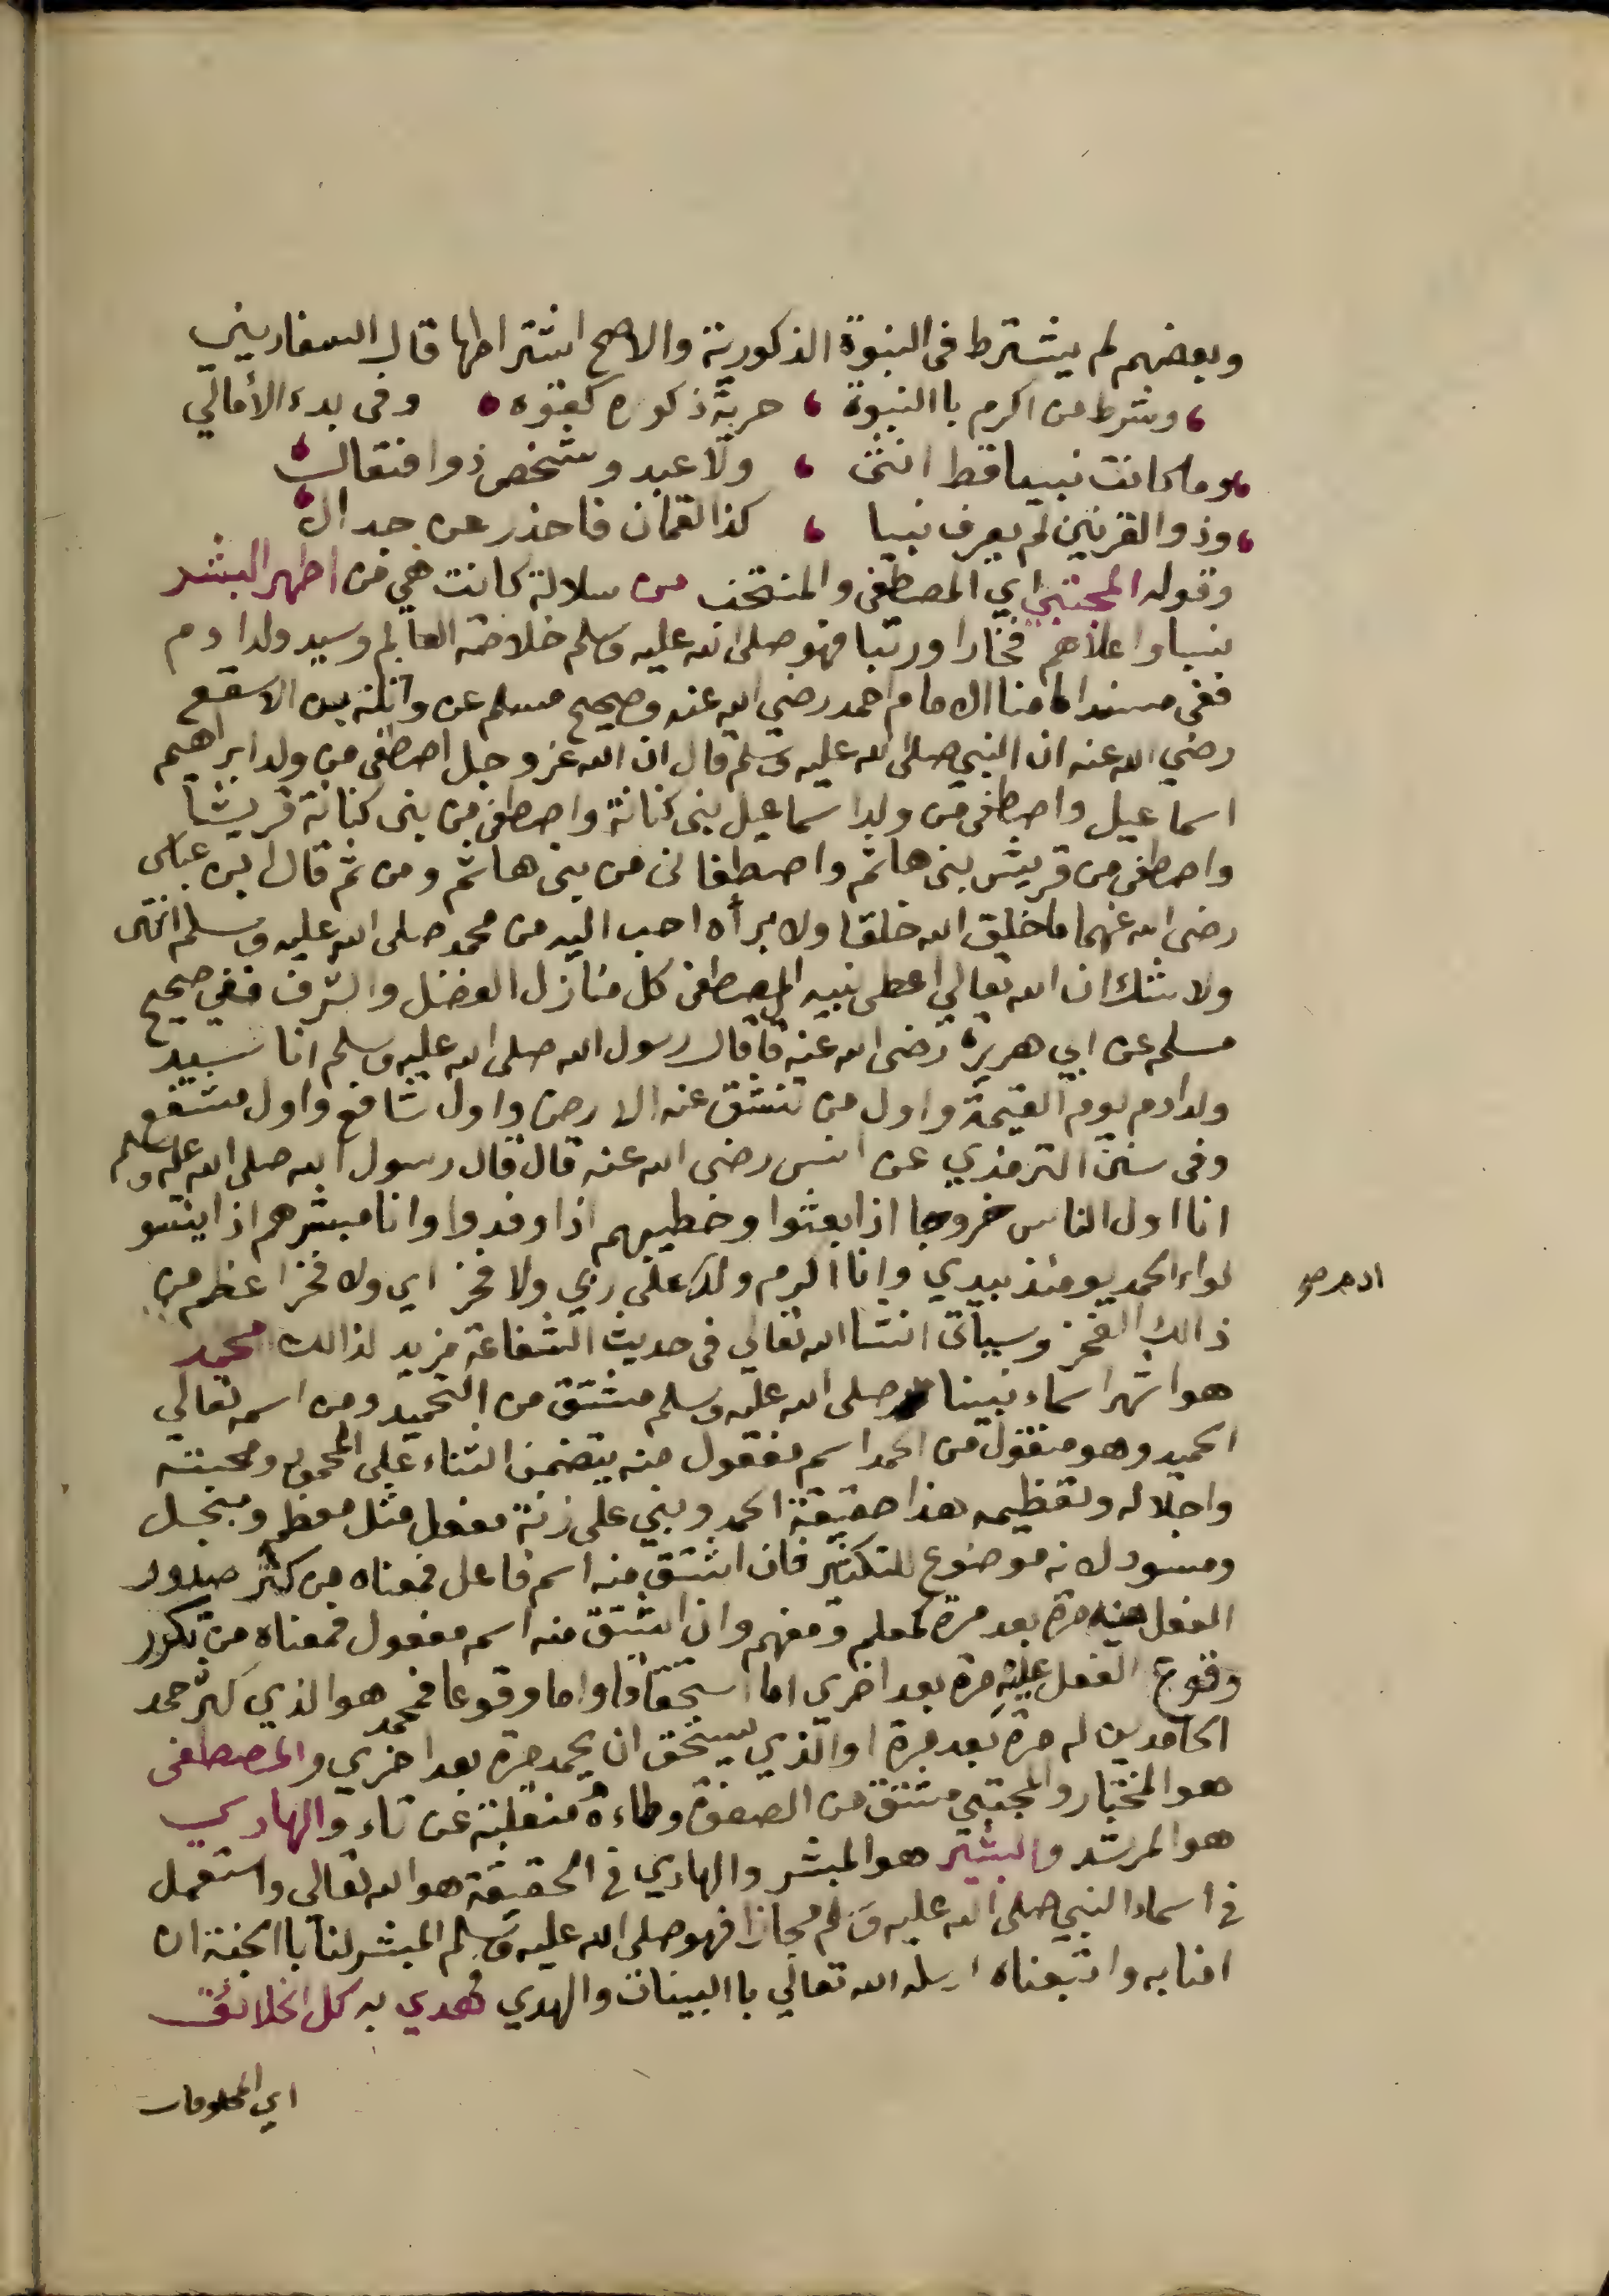 وبعضهم لم يشترط في النبوة الذكورية والاصح اشتراطها قال السفاريني
، وشرط من اكرم باالنبوة ، حرية ذكورة كقوه ، وفي بدء الأمالي
، وما كانت نبيا قط انثى ، ولا عبد وشخص ذو افتعال ،
، وذو القرنين لم يعرف نبيا ، كذا لقمان فاحذر عن جدال ،
وقوله المجتبى اي المصطفى والمنتخب من سلالة كانت هي من اطهر البشر
نسبا واعلاهم فخارا ورتبا فهو صلى الله عليه وسلم خلاصة العالم وسيد ولد ادم
ففي مسند امامنا الامام احمد رضي الله عنه وصحيح مسلم عن واثلة بن الاسقع
رضي الله عنه ان النبي صلى الله عليه وسلم قال ان الله عز وجل اصطفى من ولد ابراهيم
اسماعيل واصطفى من ولد اسماعيل بني كنانة واصطفى من بني كنانة قريشا
واصطفى من قريش بني هاشم واصطفاني من بني هاشم ومن ثم قال ابن عباس
رضي الله عنهما ما خلق الله خلقا ولا برأه احب اليه من محمد صلى الله عليه وسلم انتهى
ولا شك ان الله تعالي اعطى نبيه المصطفى كل منازل الفضل والشرف ففي صحيح
مسلم عن ابي هريرة رضي الله عنه قا قال رسول الله صلى الله عليه وسلم انا سيد
ولد ادم يوم القيمة واول من تنشق عنه الارض واول شافع واول مشفع
وفي سنن الترمذي عن انس رضي الله عنه قال قال رسول الله صلى الله عليه وسلم
انا اول الناس خروجا اذا بعثوا وخطيبهم اذا وفدوا وانا مبشرهم اذا ايئسو
لواء الحمد يومئذ بيدي وانا اكرم ولد على ربي ولا فخر اي ولا فخر اعظم من
ذالك الفخر وسيأتي انشا الله تعالي في حديث الشفاعة مزيد لذالك محمد
هو اشهر اسماء نبينا صلى الله عليه وسلم مشتق من التحميد ومن اسمه تعالي
الحميد وهو منقول من الحمد اسم مفعول منه يتضمن الثناء على المحمود ومحبته
واجلاله وتعظيمه هذا حقيقة الحمد وبني على زنة مفعل مثل معظم ومبجل
ومسود لانه موضوع للتكثير فان اشتق منه اسم فاعل فمعناه من كثر صدور
الفعل منه مرة بعد مرة لمعلم ومفهم وان اشتق منه اسم مفعول فمعناه من تكرر
وقوع الفعل عليه مرة بعد اخري اما استحقاقا واما وقوعا فمحمد هو الذي كثر حمد
الحامدين له مرة بعد مرة او الذي يستحق ان يحمد مرة بعد اخري والمصطفى
هو المختار والمجتبى مشتق من الصفوة وطاءه منقلبة عن تاء والهادي
هو المرشد والبشير هو المبشر والهادي في الحقيقة هو الله تعالى واستعمل
في اسماء النبي صلى الله عليه وسلم مجازا فهو صلى الله عليه وسلم المبشر لنا باالجنة ان
امنا به واتبعناه ارسله الله تعالي باالبينات والهدي فهدي به كل الخلائق
اي المخلوقات